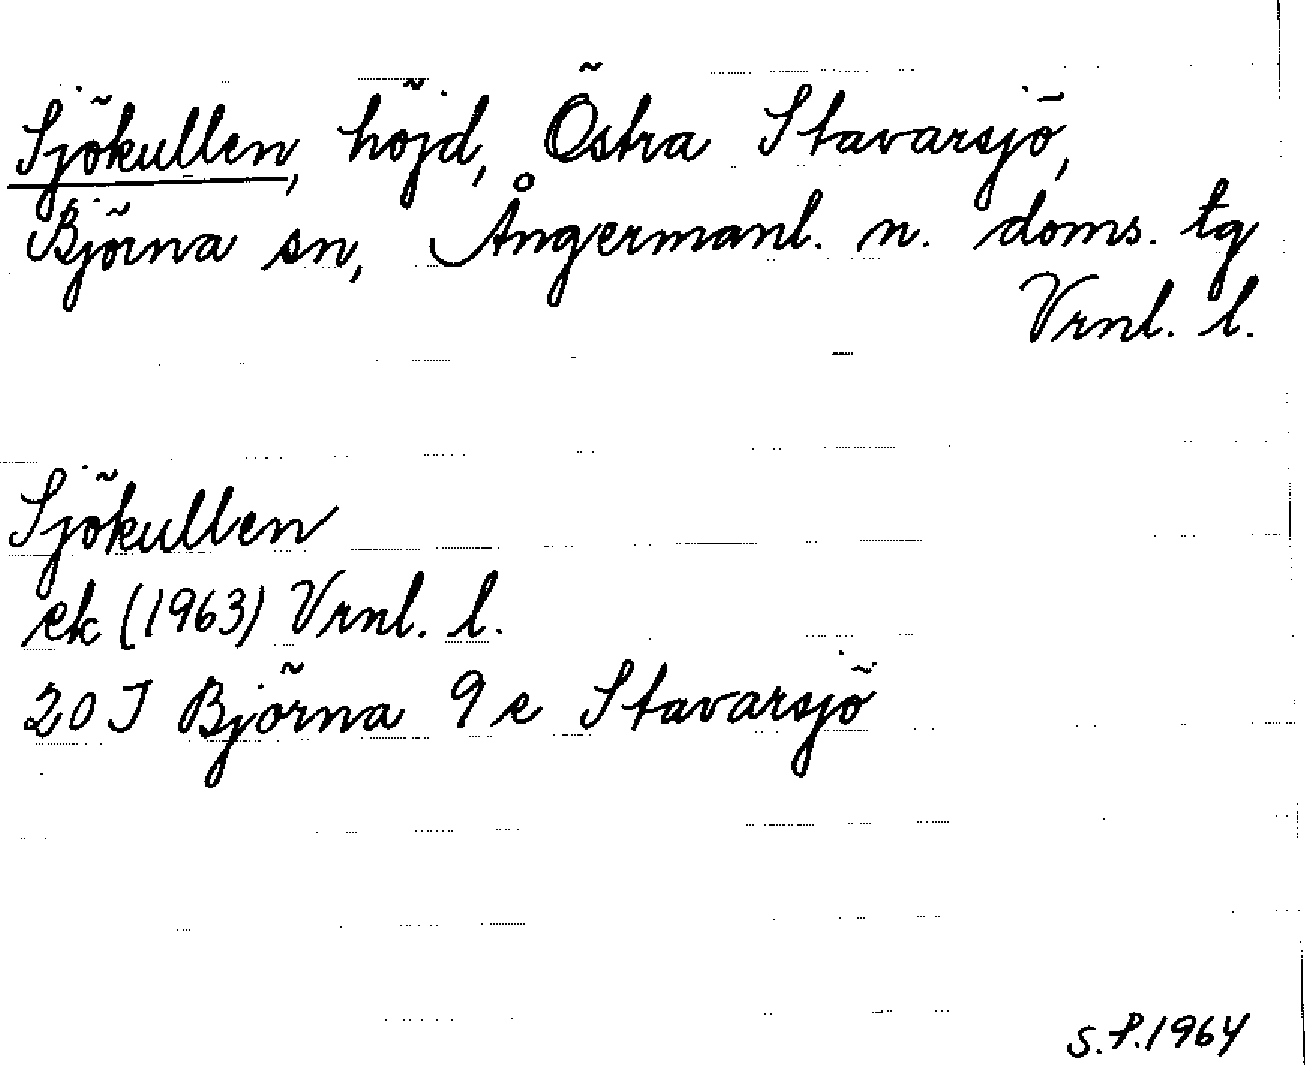 Sjökullen, höjd, Östra Stavarsjö,
Björna sn, Ångermanl. n. doms. tg
Vrnl. l.
Sjökullen
ek (1963) Vrnl. l.
20 J Björna 9 e Stavarsjö
S.P. 1964